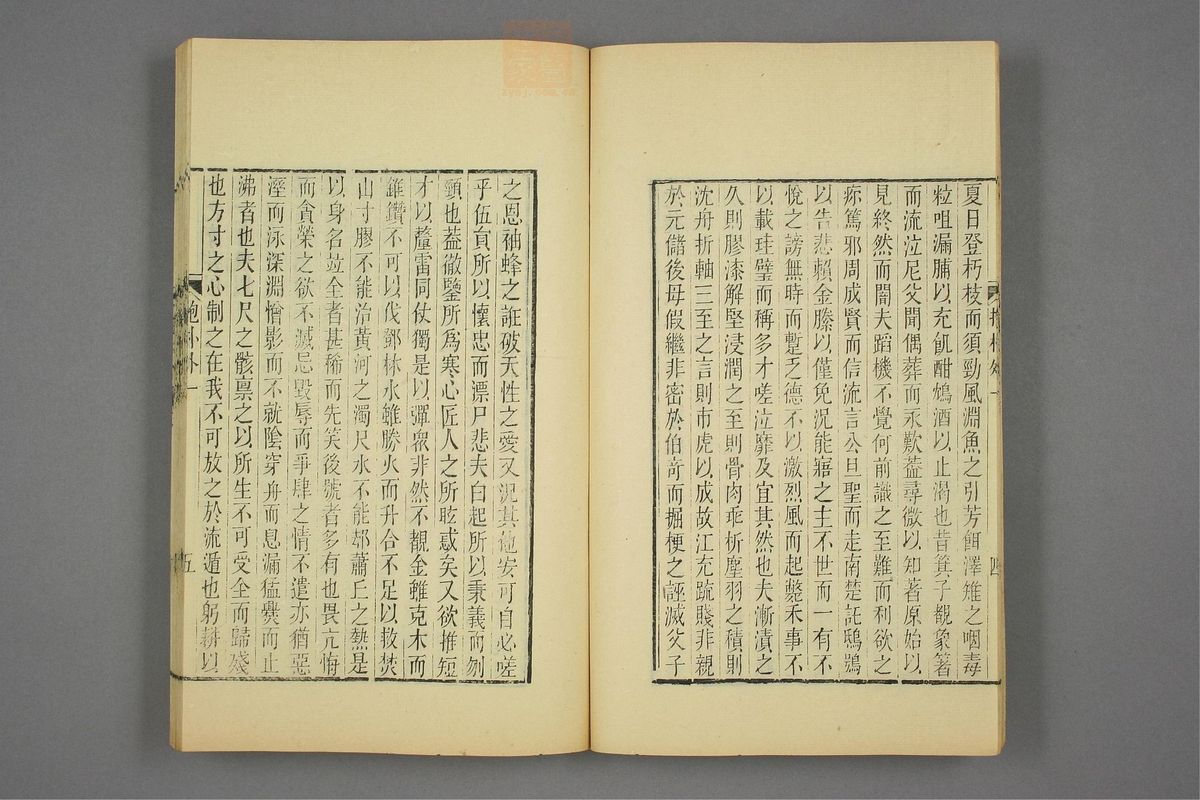 夏日登朽枝而須勁風淵魚之引芳餌澤雉之咽毒
粒咀漏脯以充飢酣鴆酒以止渴也昔箕子覩象箸
而流泣尼父聞偶葬而永歎蓋尋微以知著原始以
見終然而闇夫蹈機不覺何前識之至難而利欲之
疢篤邪周成賢而信流言公旦聖而走南楚託鴟鴞
以告悲賴金縢以僅免況能寤之主不世而一有不
悅之謗無時而蹔乏德不以激烈風而起斃禾事不
以載珪璧而稱多才嗟泣靡及宜其然也夫漸漬之
久則膠漆解堅浸潤之至則骨肉乖析塵羽之積則
沈舟折軸三至之言則市虎以成故江充疏賤非親
於元儲後母假繼非密於伯奇而掘梗之誣滅父子
四
之恩袖蜂之誑破天性之愛又況其他安可自必嗟
乎伍員所以懷忠而漂尸悲夫白起所以秉義而刎
頸也蓋徹鑒所爲寒心匠人之所眩惑矣又欲推短
才以釐雷同仗獨是以彈衆非然不覩金雖克木而
錐鑽不可以伐鄧林水雖勝火而升合不足以救焚
山寸膠不能治黃河之濁尺水不能却蕭丘之熱是
以身名竝全者甚稀而先笑後號者多有也畏亢悔
而貪榮之欲不滅忌毀辱而爭肆之情不遣亦猶惡
溼而泳深淵憎影而不就陰穿舟而息漏猛爨而止
沸者也夫七尺之骸禀之以所生不可受全而歸殘
也方寸之心制之在我不可放之於流遁也躬耕以
抱朴外一
五